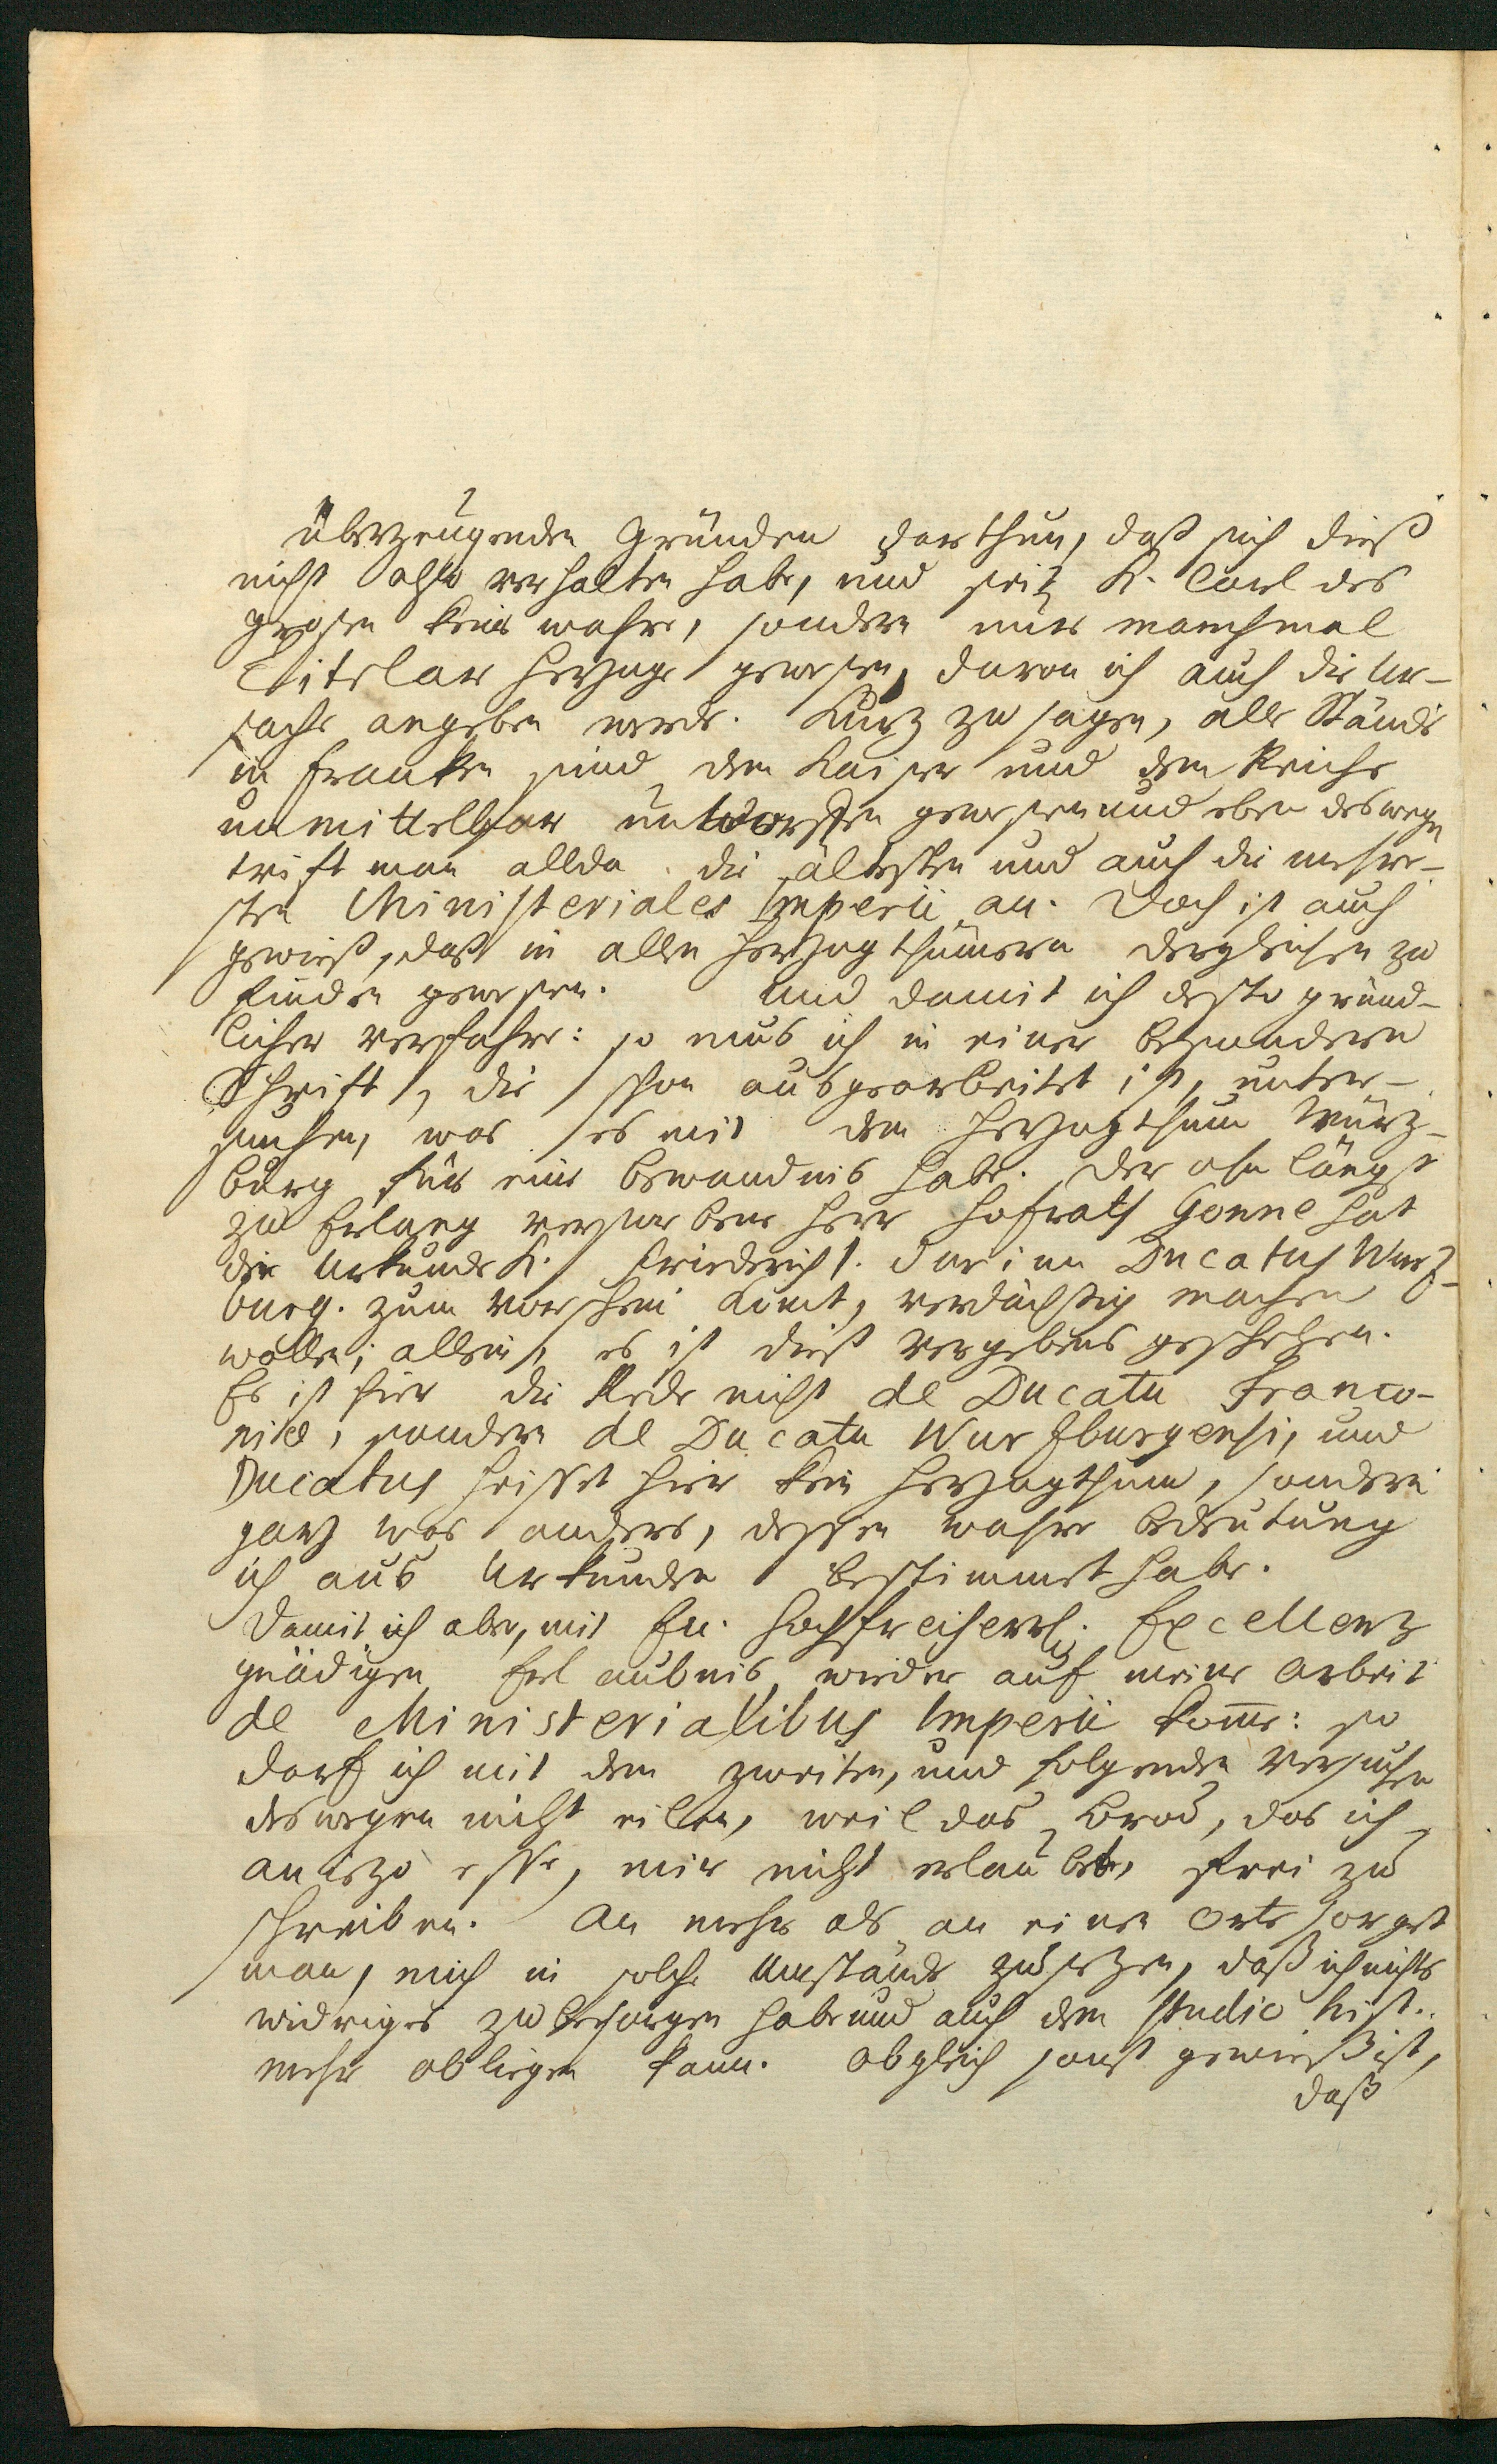 überzeugenden Gründen darthun, daß sich dieß
nicht also verhalten habe, und seit K. Carl des
grosen keine wahre, sondern nur manchmal
Titular Herzoge gewesen, davon ich auch die Ur-
sache angeben werde. Kurz zu sagen, alle Stände
in Franken sind dem Kaiser und dem Reiche
unmittelbar unterworffen gewesen und eben deswegen
trift man allda die ältesten und auch die mehre-
sten Ministeriales Imperii an. Doch ist auch
gewiß, daß in allen Herzogthümern dergleichen zu
finden gewesen. Und damit ich desto gründ-
licher verfahre: so mus ich in einer besondern
Schrift, die schon ausgearbeitet ist, unter-
suchen, was es mit dem Herzogthum Würz-
burg für eine bewandnis habe. Der ohnlängst
zu Erlang verstorbene Herr Hofrath Gonne hat
die Urkunde K. Friedrich I. darinn Ducatus Wurz-
burg. zum vorschein kömt, verdächtig machen
wollen; allein, es ist dieß vergebens geschehen.
Es ist hier die Rede nicht de Ducatu Franco-
niae, sondern de Ducatu Wurzburgensi, und
Ducatus heisset hier kein Herzogthum, sondern
ganz was anders, dessen wahre bedeutung
ich aus Urkunden bestimmet habe.
Damit ich aber, mit Eu. Hochfreiherrl. Excellenz
gnädigen Erlaubnis, wieder auf meine arbeit
de Ministerialibus Imperii kom̅e: so
darf ich mit dem zweiten, und folgenden Versuchen
deswegen nicht eilen, weil das Brod, das ich
an iezo esse, mir nicht erlaubet, frei zu
schreiben. An mehr als an einem Orte sorget
man, mich in solche Umstände zu sezen, daß ich nichts
widriges zu besorgen habe und auch dem studio hist.
mehr obliegen kann. Obgleich sonst gewieß ist,
daß